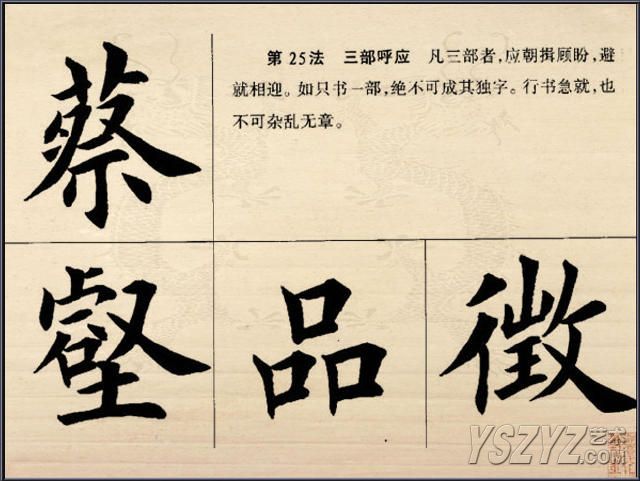 第25法 三部呼应 凡三部者，应朝揖顾盼，避
就相迎。如只书一部，绝不可成其独字。行书急就，也
不可杂乱无章。
蔡
壑 品 徵
YSZYZ艺术
.COM